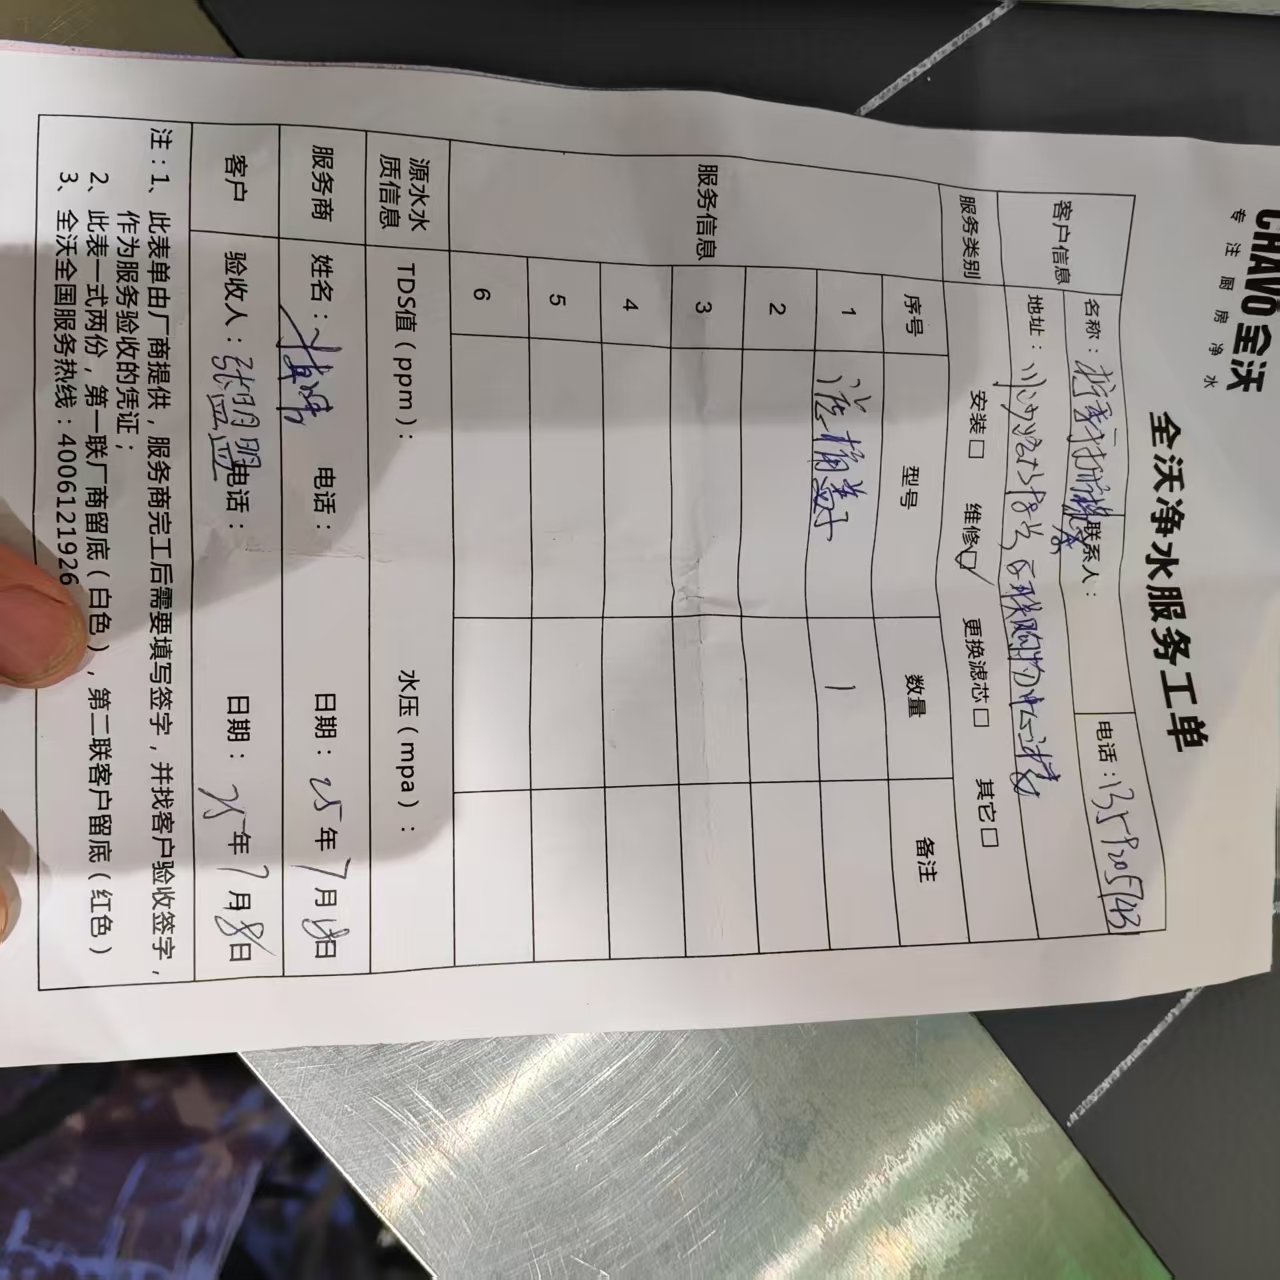 CHAVO 全沃
专注厨房净水
全沃净水服务工单
客户信息 名称: 联系人: 电话:
地址: 川沙路 号 百联购物中心 楼
服务类别 安装□ 维修☑ 更换滤芯□ 其它□
服务信息 序号 型号 数量 备注
1 1
2
3
4
5
6
源水水质信息 TDS值(ppm): 水压(mpa):
服务商 姓名: 电话: 日期:25年7月18日
客户 验收人:张 电话: 日期:25年7月18日
注:1、此表单由厂商提供,服务商完工后需要填写签字,并找客户验收签字,
作为服务验收的凭证;
2、此表一式两份,第一联厂商留底(白色),第二联客户留底(红色)
3、全沃全国服务热线:4006121926